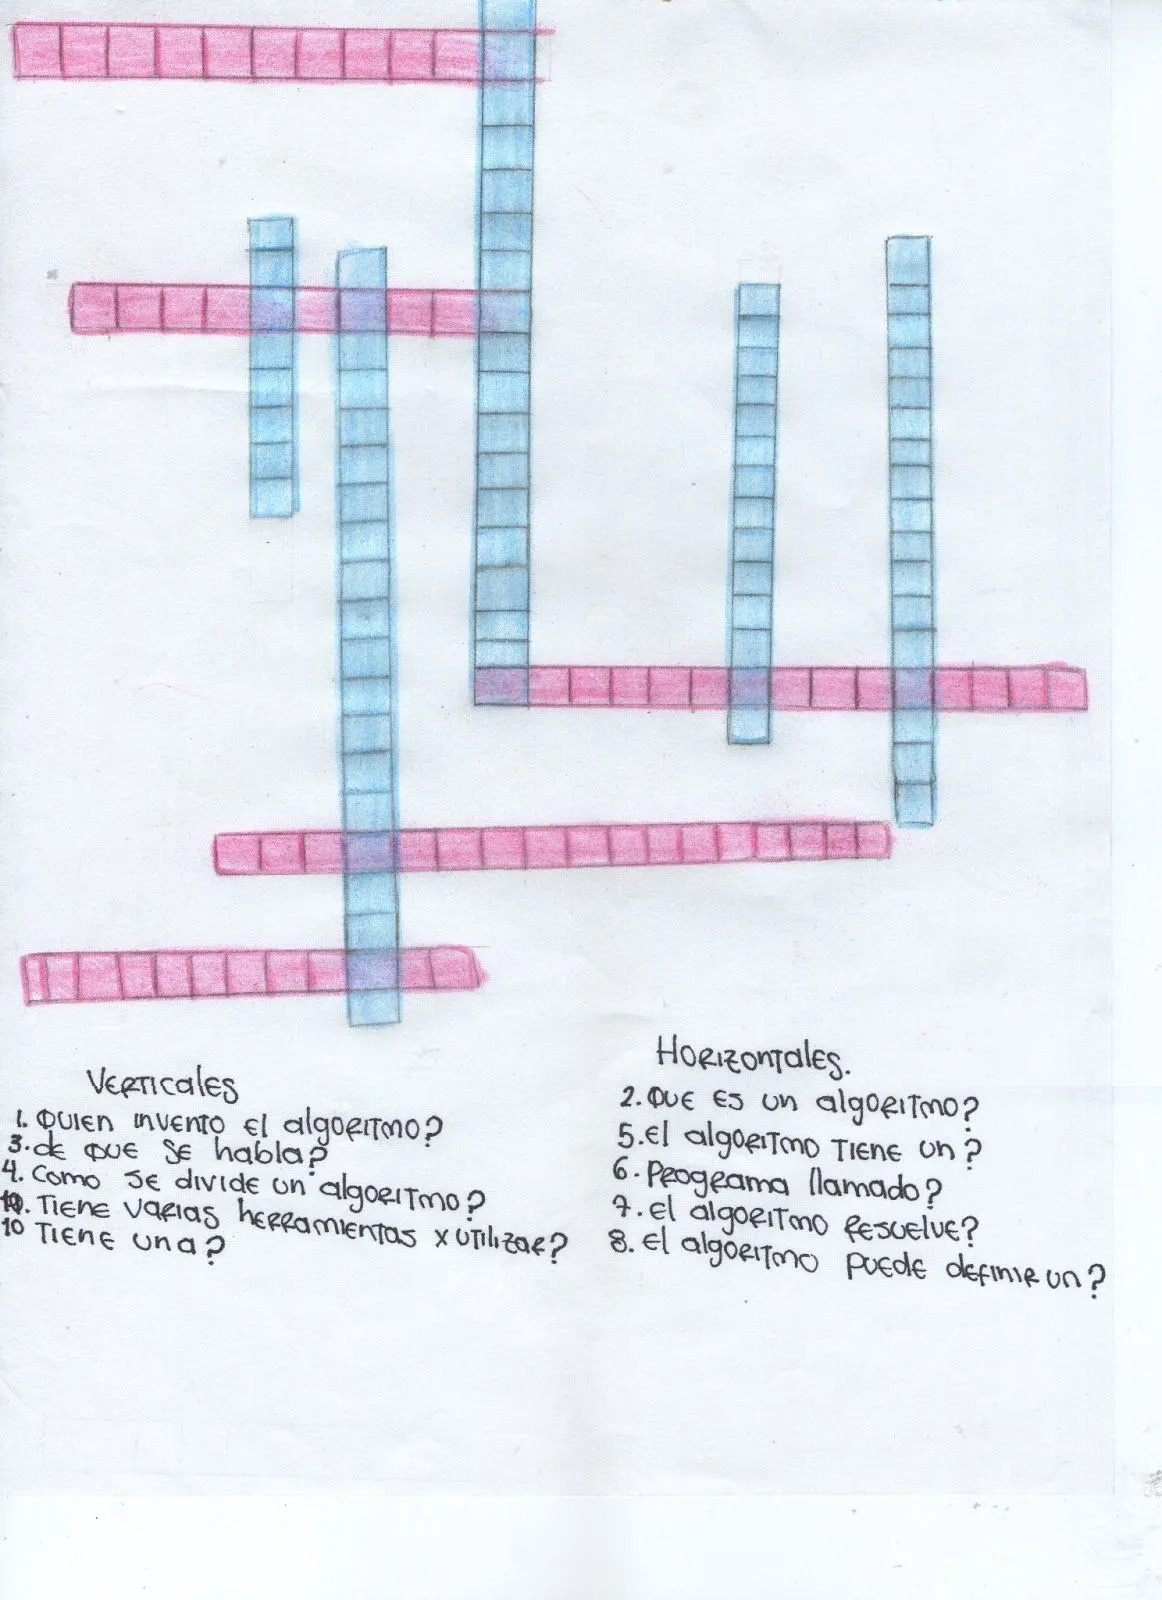 VERTICALES
1. QUIEN INVENTO El algORITMO?
3. dE QUE SE habla?
4. COMO SE dIVIdE UN algORITMO?
10. TIENE VARIAS hERRAMIENTAS x UTILIZAR?
10 TIENE UNA?
HORIZONTALES.
2. QUE ES UN algORITMO?
5. El algORITMO TIENE UN?
6. PROgRama llamado?
7. El algORITMO RESUELVE?
8. El algORITMO PUEDE dEFINIR UN?